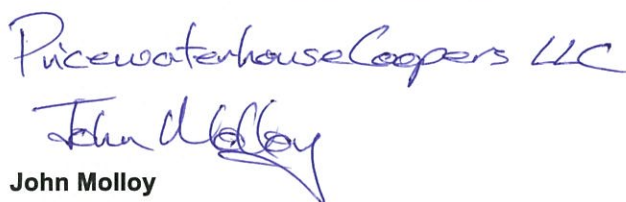 PricewaterhouseCoopers LLC
John Molloy
John Molloy